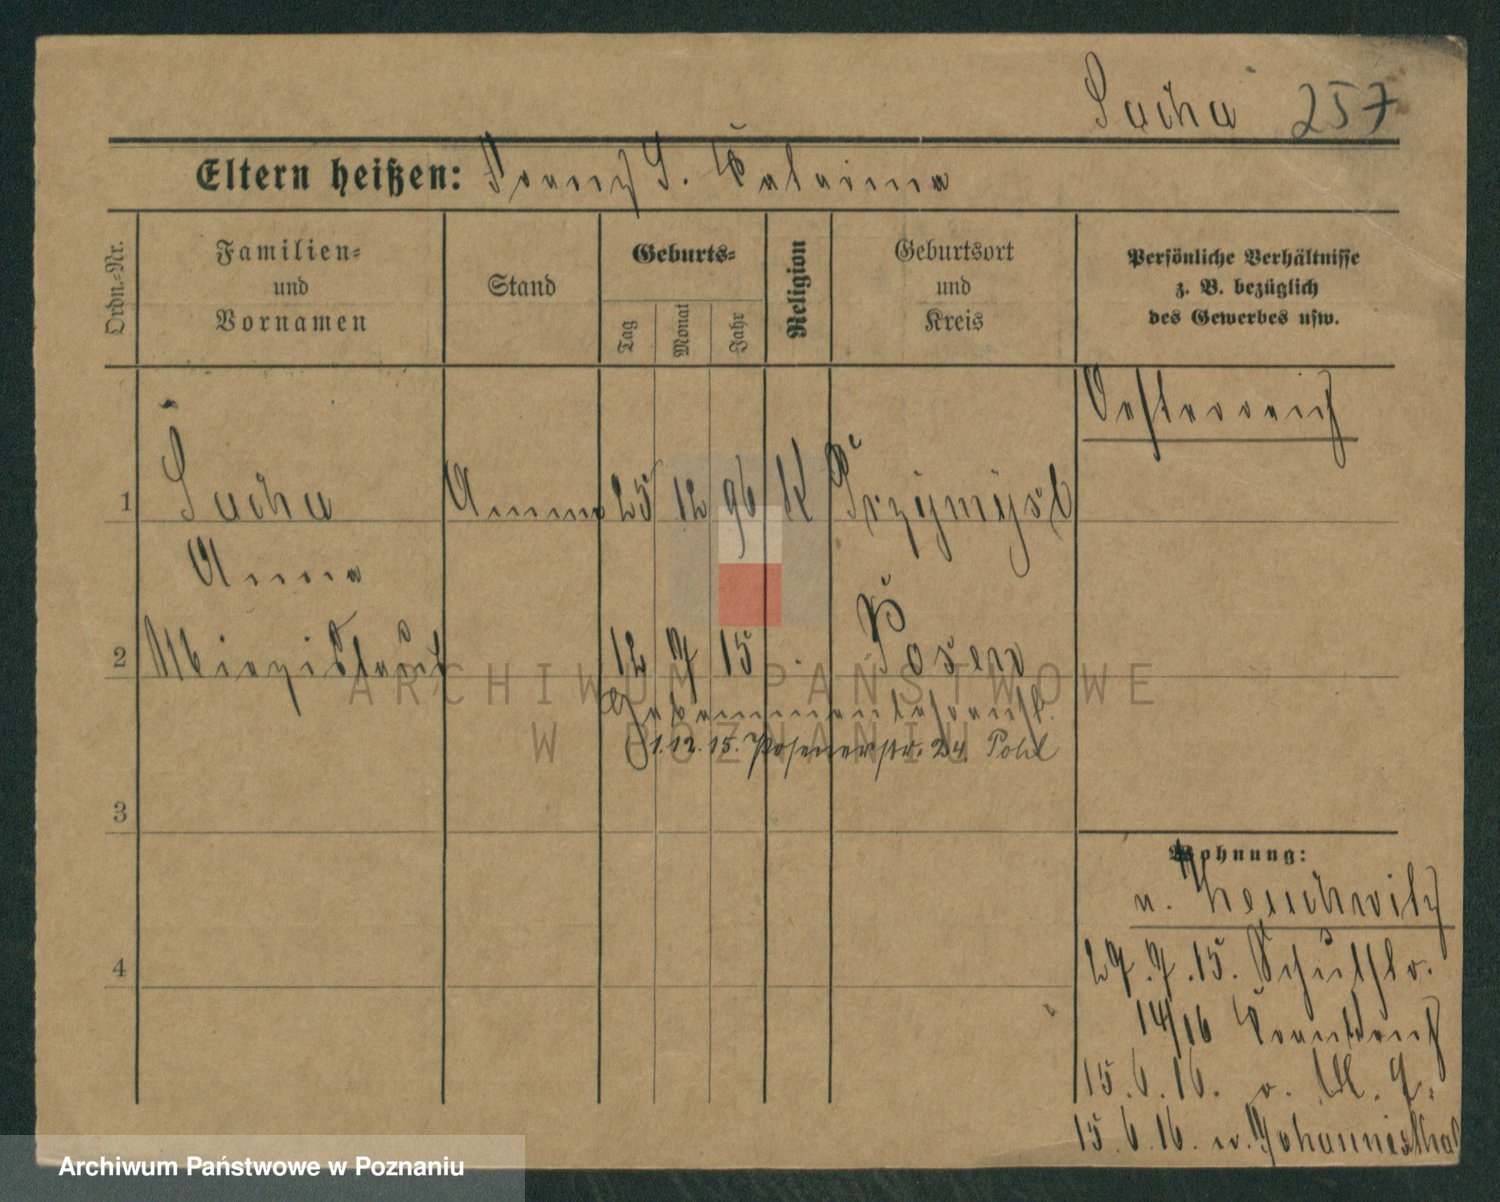 Sucha 257
Eltern heißen: Franz S. Katarina
Ordn.-Nr.
Familien-
und
Vornamen
Stand
Geburts-
Tag
Monat
Jahr
Religion
Geburtsort
und
Kreis
Persönliche Verhältnisse
z. B. bezüglich
des Gewerbes usw.
Oesterreich
1 Sucha 25 12 96 K Przymysl
Anna
2 Miezislaus 12 7 15 Posen
Hebammenlehranst.
1.12.15. Posenerstr. 24. Pohl
3
Wohnung:
n.
27.7.15. Schulstr.
4
14/16 Krankenh
15.6.16.
15.6.16. n. Johannisthal
ARCHIWUM PAŃSTWOWE
W POZNANIU
Archiwum Państwowe w Poznaniu